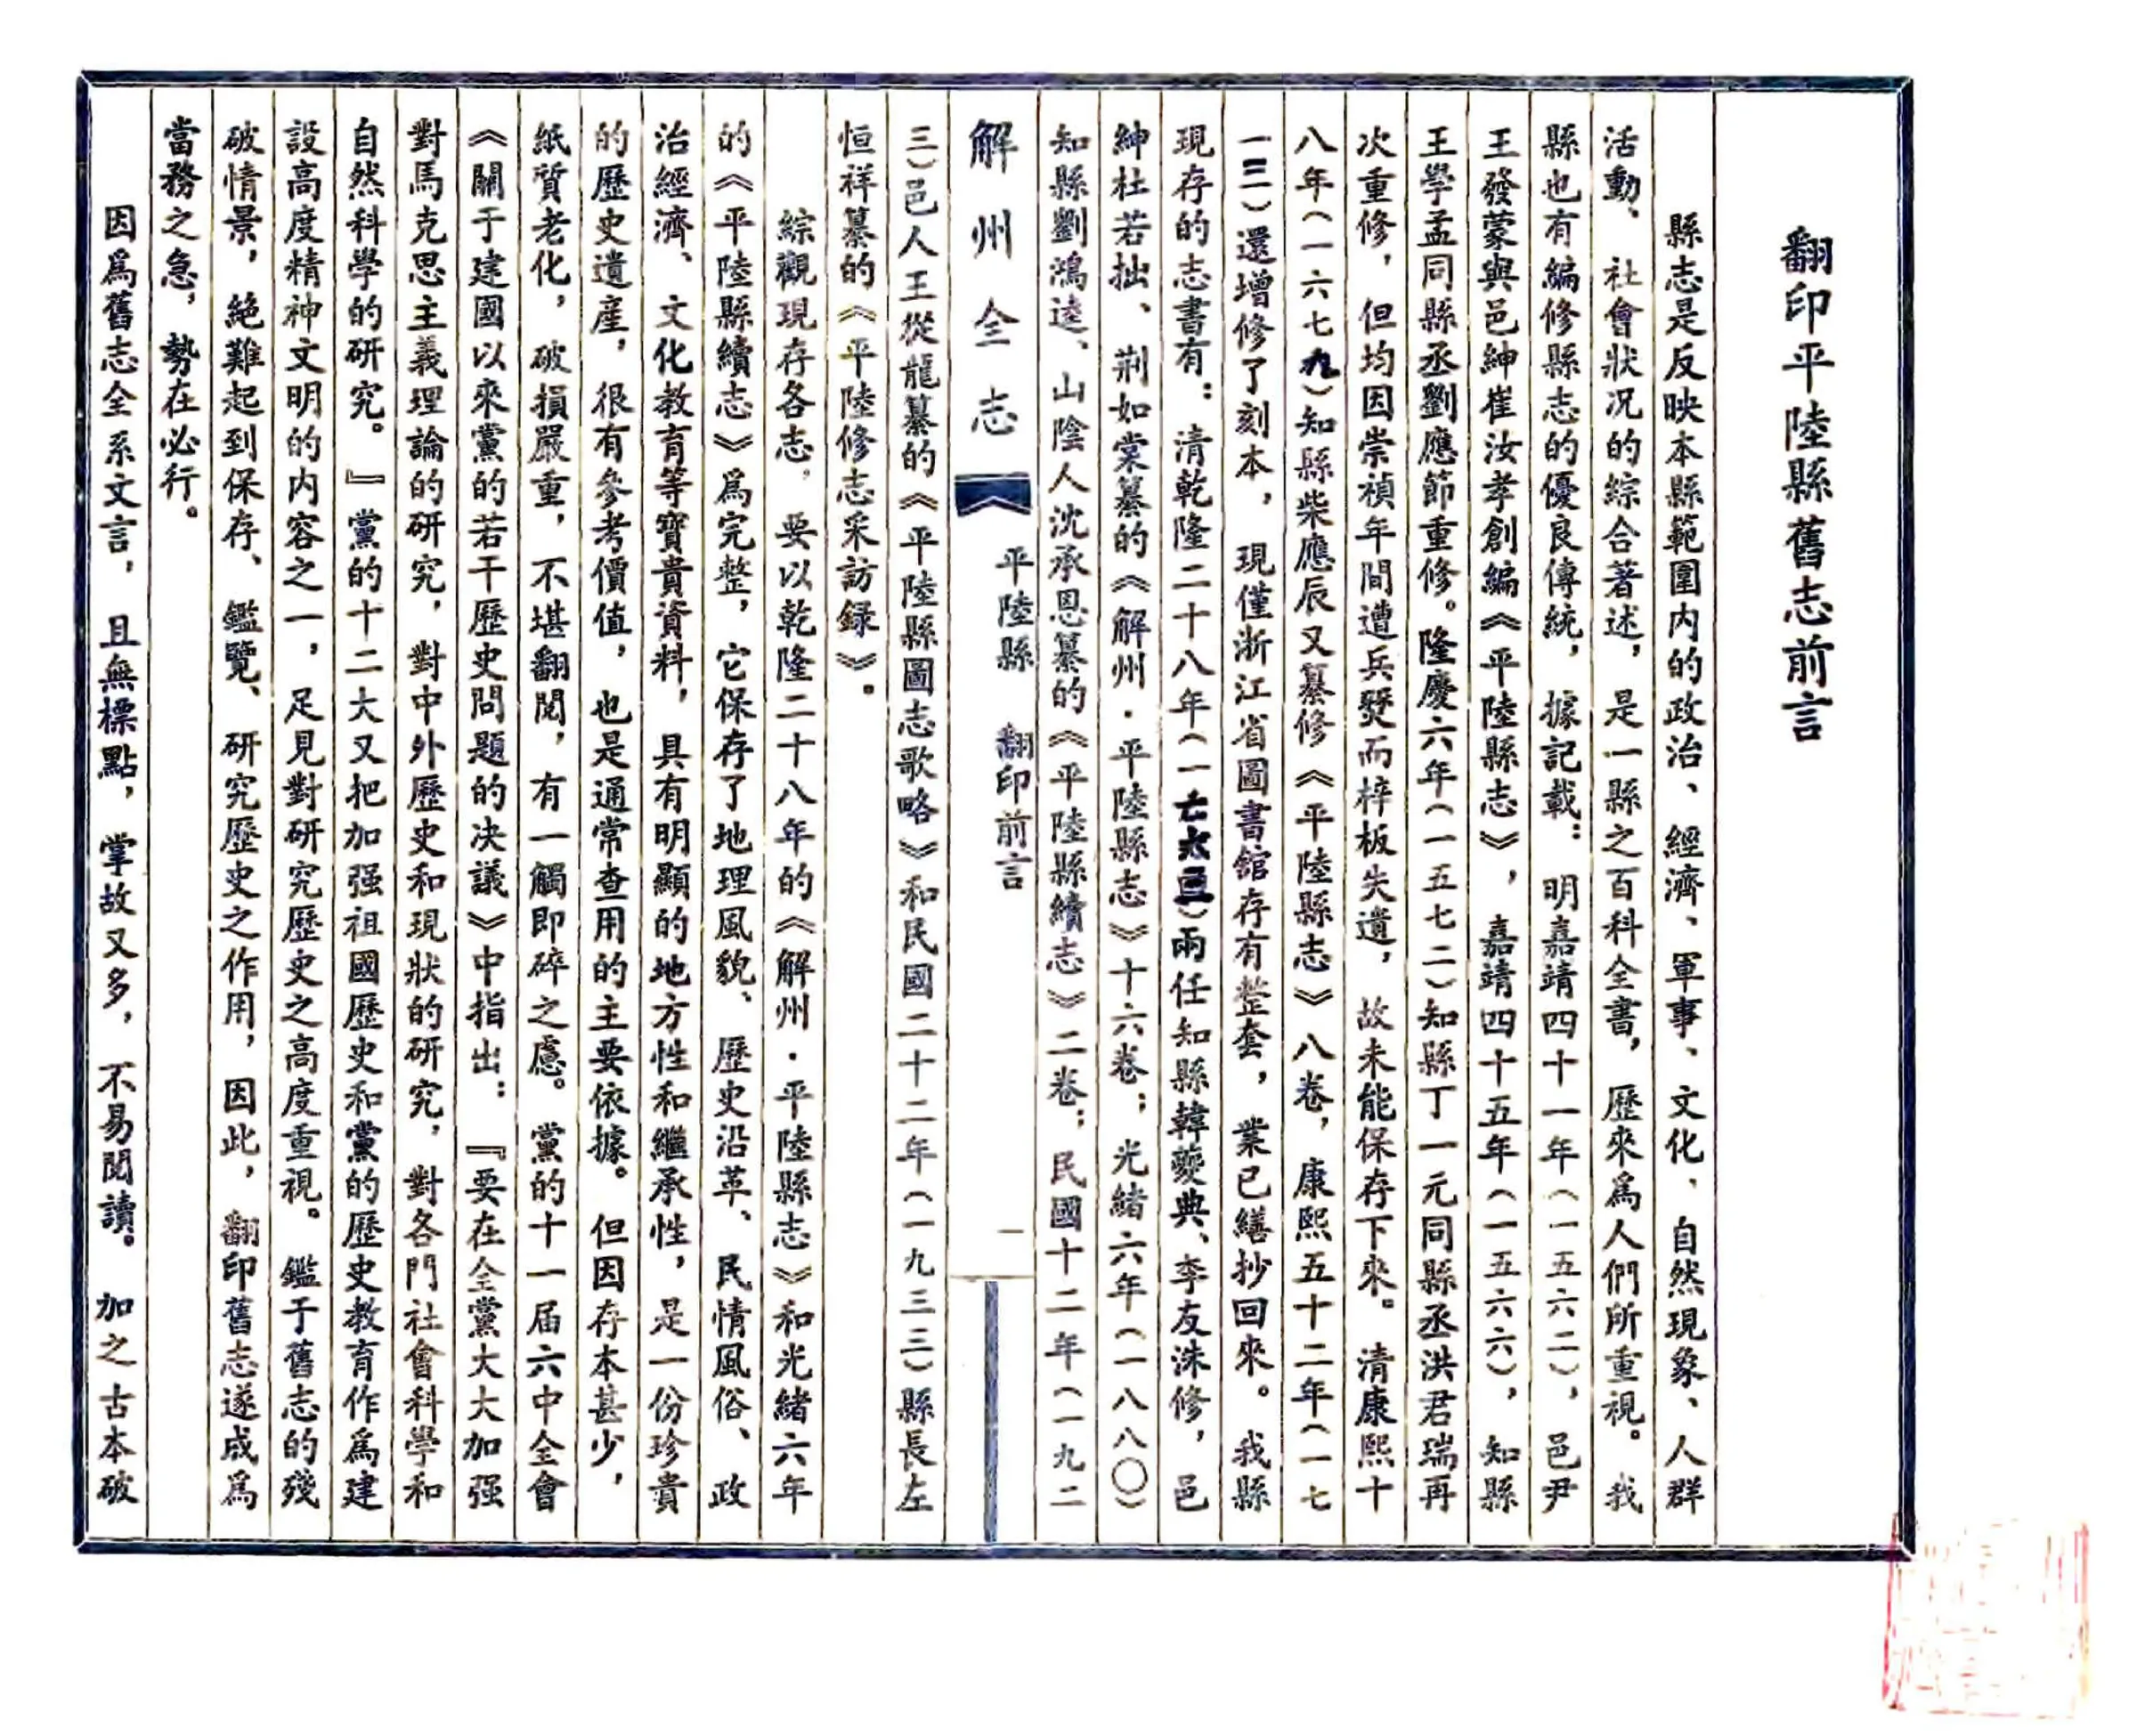 翻印平陸縣舊志前言
縣志是反映本縣範圍内的政治、經濟、軍事、文化、自然現象、人群
活動、社會狀况的綜合著述，是一縣之百科全書，歷來爲人們所重視。我
縣也有編修縣志的優良傳統，據記載：明嘉靖四十一年（一五六二），邑尹
王發蒙與邑紳崔汝孝創編《平陸縣志》，嘉靖四十五年（一五六六），知縣
王學孟同縣丞劉應節重修。隆慶六年（一五七二）知縣丁一元同縣丞洪君瑞再
次重修，但均因崇禎年間遭兵燹而梓板失遺，故未能保存下來。清康熙十
八年（一六七九）知縣柴應辰又纂修《平陸縣志》八卷，康熙五十二年（一七
一三）還增修了刻本，現僅浙江省圖書館存有整套，業已繕抄回來。我縣
現存的志書有：清乾隆二十八年（一七六三）兩任知縣韓夔典、李友洙修，邑
紳杜若拙、荆如棠纂的《解州·平陸縣志》十六卷；光緒六年（一八八〇）
知縣劉鴻逵、山陰人沈承恩纂的《平陸縣續志》二卷；民國十二年（一九二
解州全志
平陸縣 翻印前言
一
三）邑人王從龍纂的《平陸縣圖志歌略》和民國二十二年（一九三三）縣長左
恒祥纂的《平陸修志采訪録》。
綜觀現存各志，要以乾隆二十八年的《解州·平陸縣志》和光緒六年
的《平陸縣續志》爲完整，它保存了地理風貌、歷史沿革、民情風俗、政
治經濟、文化教育等寶貴資料，具有明顯的地方性和繼承性，是一份珍貴
的歷史遺産，很有參考價值，也是通常查用的主要依據。但因存本甚少，
紙質老化，破損嚴重，不堪翻閲，有一觸即碎之慮。黨的十一届六中全會
《關于建國以來黨的若干歷史問題的决議》中指出：『要在全黨大大加强
對馬克思主義理論的研究，對中外歷史和現狀的研究，對各門社會科學和
自然科學的研究。』黨的十二大又把加强祖國歷史和黨的歷史教育作爲建
設高度精神文明的内容之一，足見對研究歷史之高度重視。鑑于舊志的殘
破情景，絶難起到保存、鑑覽、研究歷史之作用，因此，翻印舊志遂成爲
當務之急，勢在必行。
因爲舊志全系文言，且無標點，掌故又多，不易閲讀。加之古本破